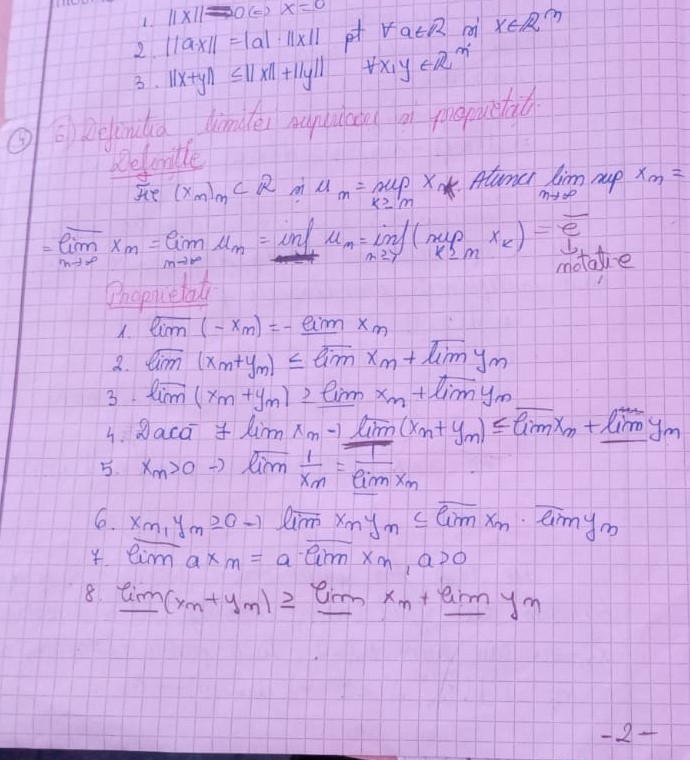 1. ||x|| = 0 (=) x = 0
2. ||ax|| = |a| · ||x|| pt ∀ a∈R și x∈Rⁿ
3. ||x+y|| ≤ ||x|| + ||y|| ∀x,y ∈Rⁿ
6) Definitia limitei superioare și proprietăți
Definitie
Fie (xₙ)ₙ ⊂ R și uₙ = sup xₖ Atunci lim sup xₙ =
k≥n n→∞
= l̅i̅m̅ xₙ = lim uₙ = inf uₙ = inf (sup xₖ) = e̅
n→∞ n→∞ n≥1 k≥n ↓
notație
Proprietati
1. l̅i̅m̅ (-xₙ) = - l̲i̲m̲ xₙ
2. l̅i̅m̅ (xₙ+yₙ) ≤ l̅i̅m̅ xₙ + l̅i̅m̅ yₙ
3. l̅i̅m̅ (xₙ+yₙ) ≥ l̲i̲m̲ xₙ + l̅i̅m̅ yₙ
4. Dacă ∃ lim xₙ -) l̲i̲m̲ (xₙ+yₙ) ≤ l̅i̅m̅ xₙ + l̲i̲m̲ yₙ
5. xₙ>0 -) l̅i̅m̅ 1/xₙ = 1/l̲i̲m̲ xₙ
6. xₙ,yₙ ≥0 -) l̅i̅m̅ xₙyₙ ≤ l̅i̅m̅ xₙ · l̅i̅m̅ yₙ
7. l̅i̅m̅ axₙ = a · l̅i̅m̅ xₙ, a>0
8. l̲i̲m̲ (xₙ+yₙ) ≥ l̲i̲m̲ xₙ + l̲i̲m̲ yₙ
-2-